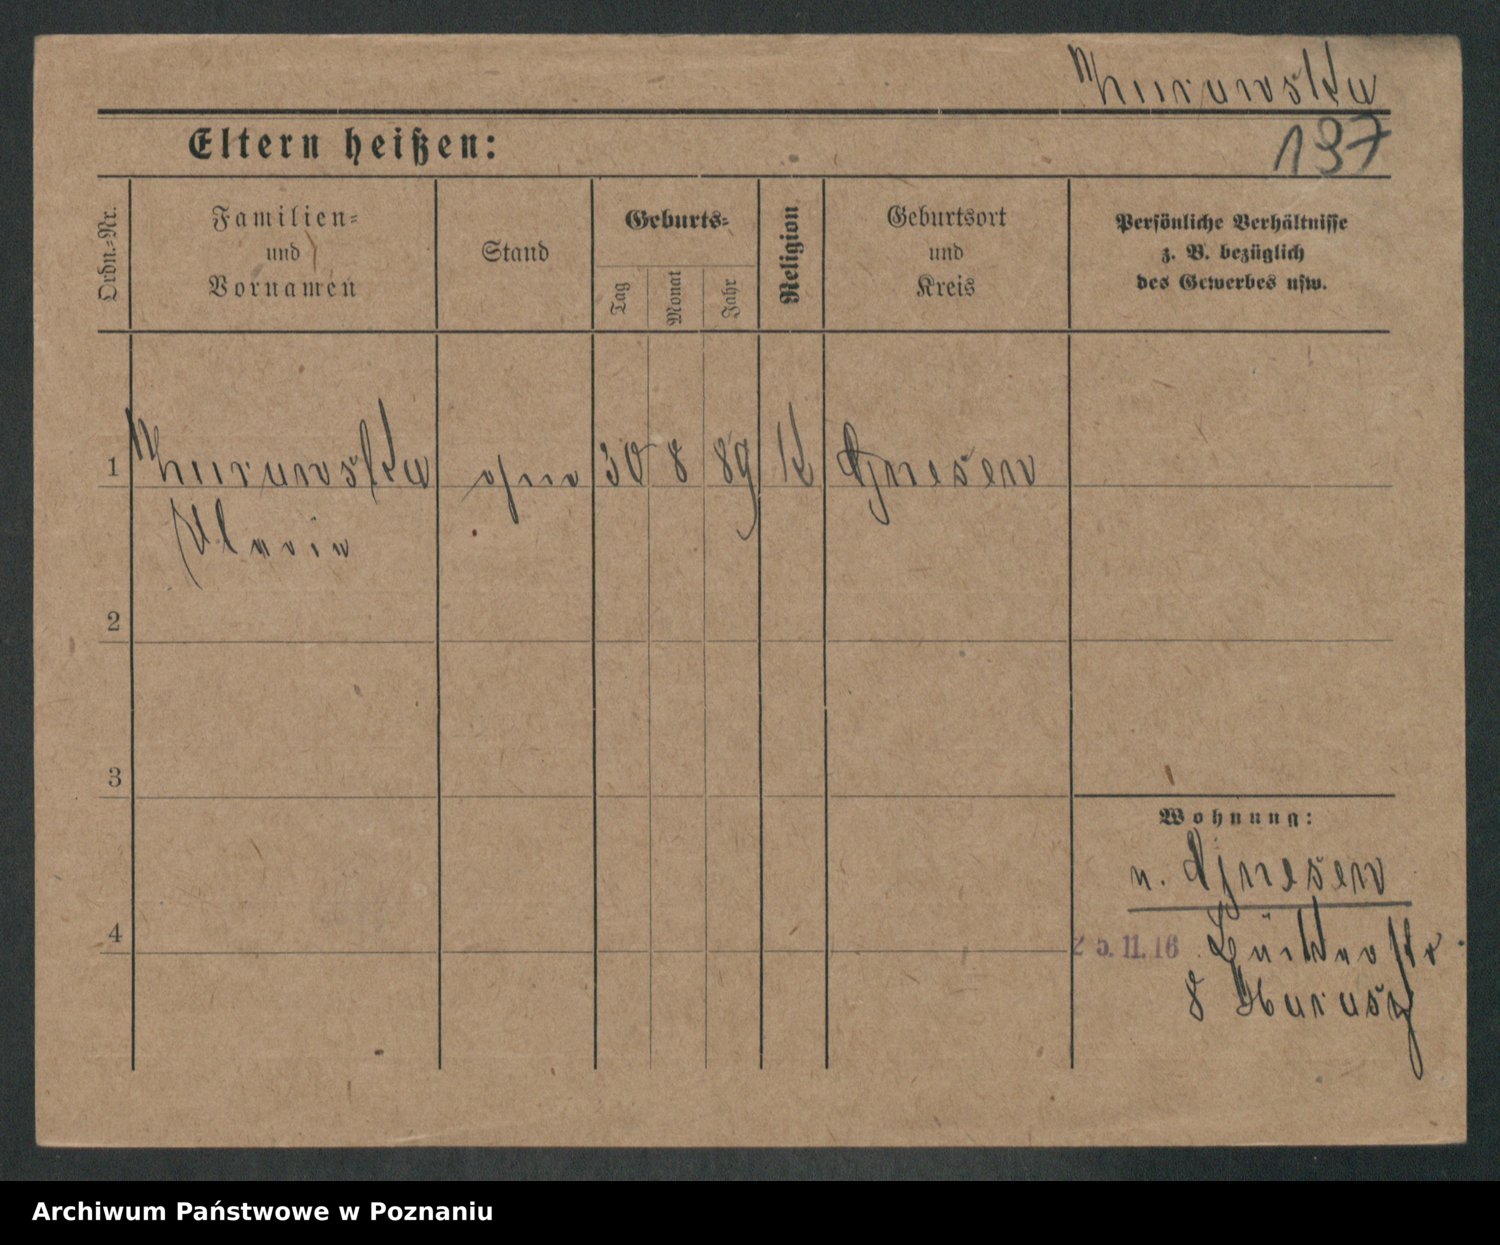 Murawska
137
Eltern heißen:
Ordn.-Nr.
Familien-
und
Vornamen
Stand
Geburts-
Tag
Monat
Jahr
Religion
Geburtsort
und
Kreis
Persönliche Verhältnisse
z. B. bezüglich
des Gewerbes usw.
1 Murawska ohne 30 8 89 K Gnesen
Maria
2
3
4
Wohnung:
n. Gnesen
25.11.16
8
Archiwum Państwowe w Poznaniu